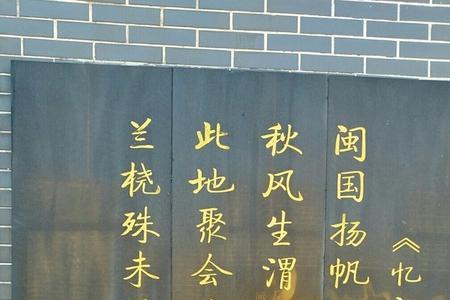 《忆
闽国扬帆
秋风生渭
此地聚会
兰桡殊未